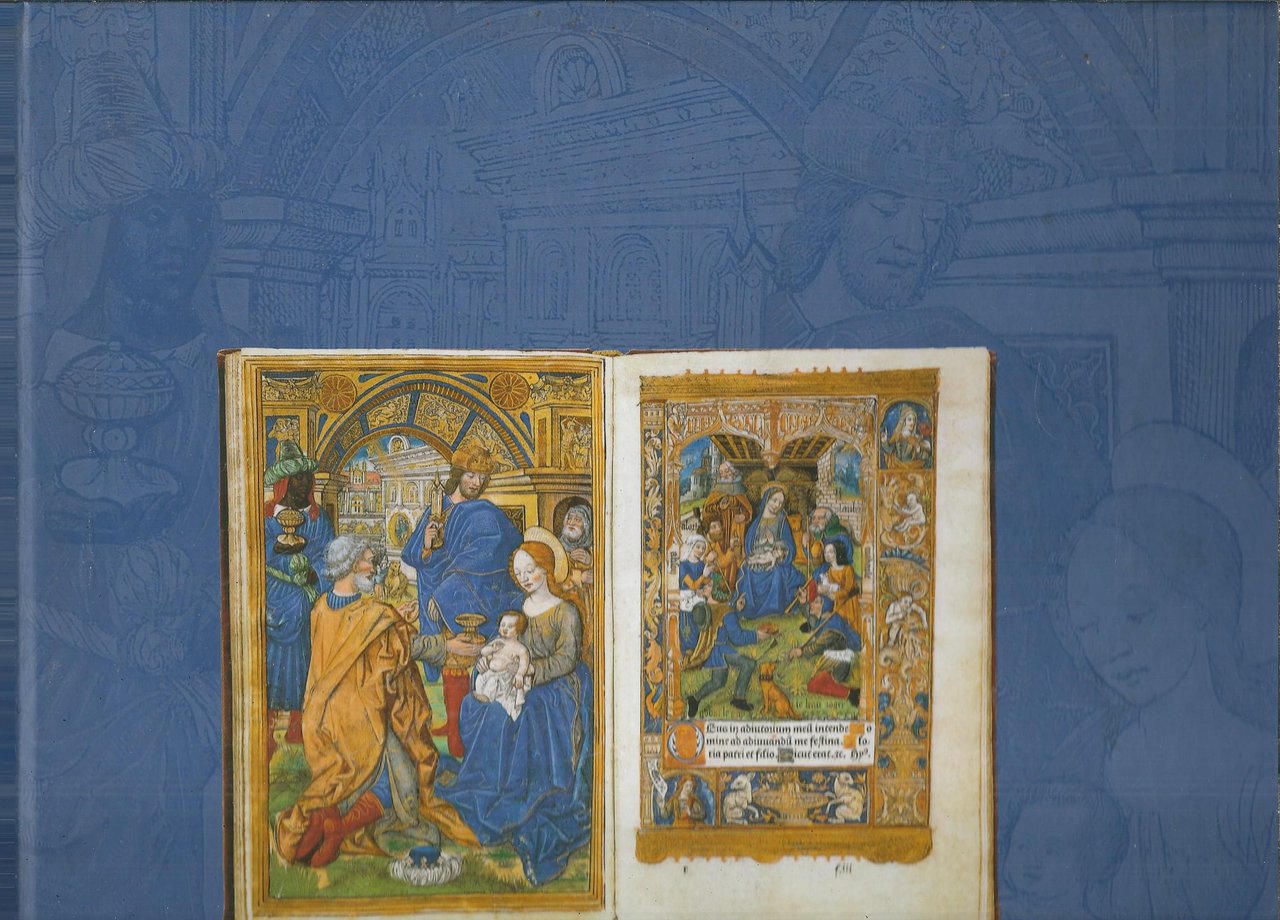 DEus in adiutorium meū intende Do
mine ad adiuuandū me festina. Glo
ria patri et filio. Sicut erat. ꝛc. Hyº.
le beau roger
f.iii